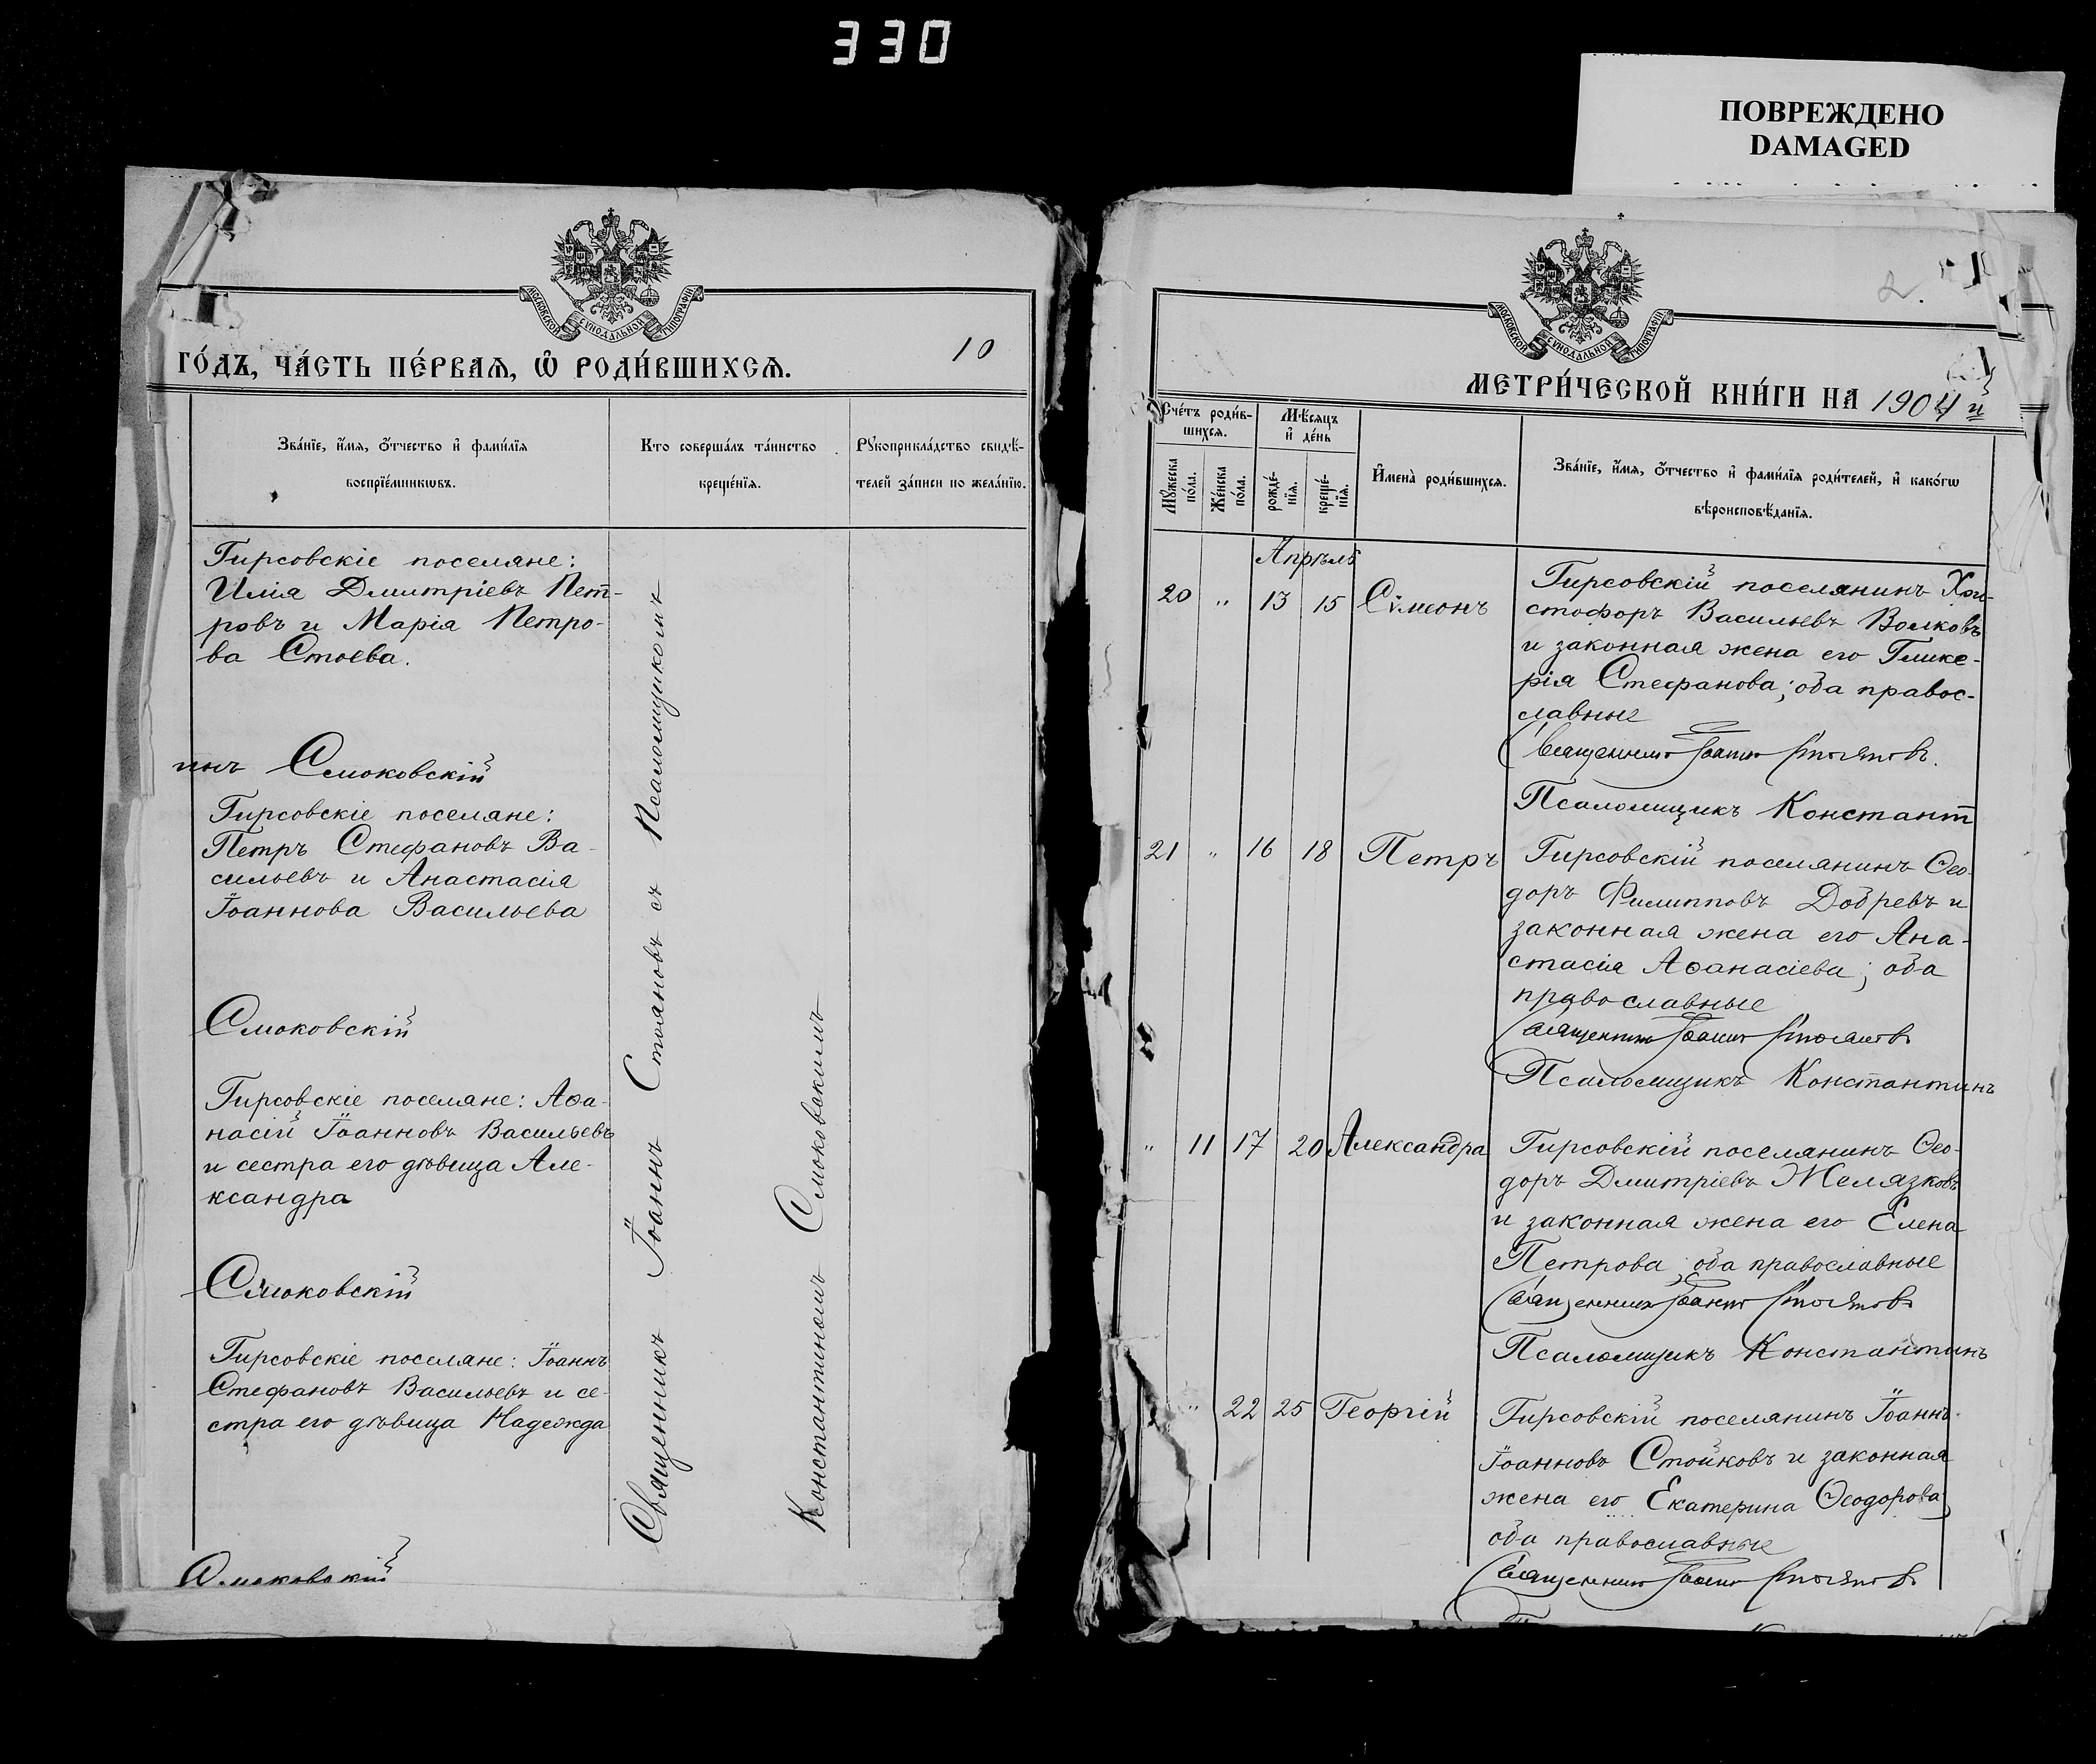 330
ПОВРЕЖДЕНО
DAMAGED
МОСКОВСКОЙ СѴНОДАЛЬНОЙ ТИПОГРАФІИ
ГО́ДЪ, ЧА́СТЬ ПЕ́РВАѦ, Ѡ҆ РОДИ́ВШИХСѦ.
10
Зва́нїе, и҆́мѧ, ѻ҆́тчество и҆ фами́лїѧ
воспрїе́мникѡвъ.
Кто соверша́лъ та́инство
креще́нїѧ.
Рꙋкоприкла́дство свидѣ́-
телей за́писи по жела́нїю.
Гирсовскіе поселяне:
Илія Дмитріевъ Пет-
ровъ и Марія Петро-
ва Стоева.
инъ Смоковскій
Гирсовскіе поселяне:
Петръ Стефановъ Ва-
сильевъ и Анастасія
Іоаннова Васильева
Смоковскій
Гирсовскіе поселяне: Аѳа-
насій Іоанновъ Васильевъ
и сестра его дѣвица Але-
ксандра
Смоковскій
Гирсовскіе поселяне: Іоаннъ
Стефановъ Васильевъ и се-
стра его дѣвица Надежда
Смоковскій
Священникъ Іоаннъ Стояновъ съ Псаломщикомъ
Константиномъ Смоковскимъ
МОСКОВСКОЙ СѴНОДАЛЬНОЙ ТИПОГРАФІИ
2.
МЕТРИ́ЧЕСКОЙ КНИ́ГИ НА 1904 й
Сче́тъ роди́в-
шихсѧ.
Мꙋ́жеска
по́ла.
Же́нска
по́ла.
Мѣ́сѧцъ
и҆ де́нь
рожде́-
нїѧ.
креще́-
нїѧ.
И҆мена̀ роди́вшихсѧ.
Зва́нїе, и҆́мѧ, ѻ҆́тчество и҆ фами́лїѧ роди́телей, и҆ како́гѡ
вѣроисповѣ́данїѧ.
Апрѣль
20 " 13 15 Сімеонъ
Гирсовскій поселянинъ Хри-
стофоръ Васильевъ Волковъ
и законная жена его Глике-
рія Стефанова; оба правос-
лавные
Священникъ Іоаннъ Стояновъ.
Псаломщикъ Констант
21 " 16 18 Петръ
Гирсовскій поселянинъ Ѳео-
доръ Филипповъ Добревъ и
законная жена его Ана-
стасія Аѳанасіева; оба
православные
Священникъ Іоаннъ Стояновъ
Псаломщикъ Константинъ
" 11 17 20 Александра
Гирсовскій поселянинъ Ѳео-
доръ Дмитріевъ Желязковъ
и законная жена его Елена
Петрова; оба православные
Священникъ Іоаннъ Стояновъ
Псаломщикъ Константинъ
" 22 25 Георгій
Гирсовскій поселянинъ Іоаннъ
Іоанновъ Стойковъ и законная
жена его Екатерина Ѳеодорова;
оба православные
Священникъ Іоаннъ Стояновъ